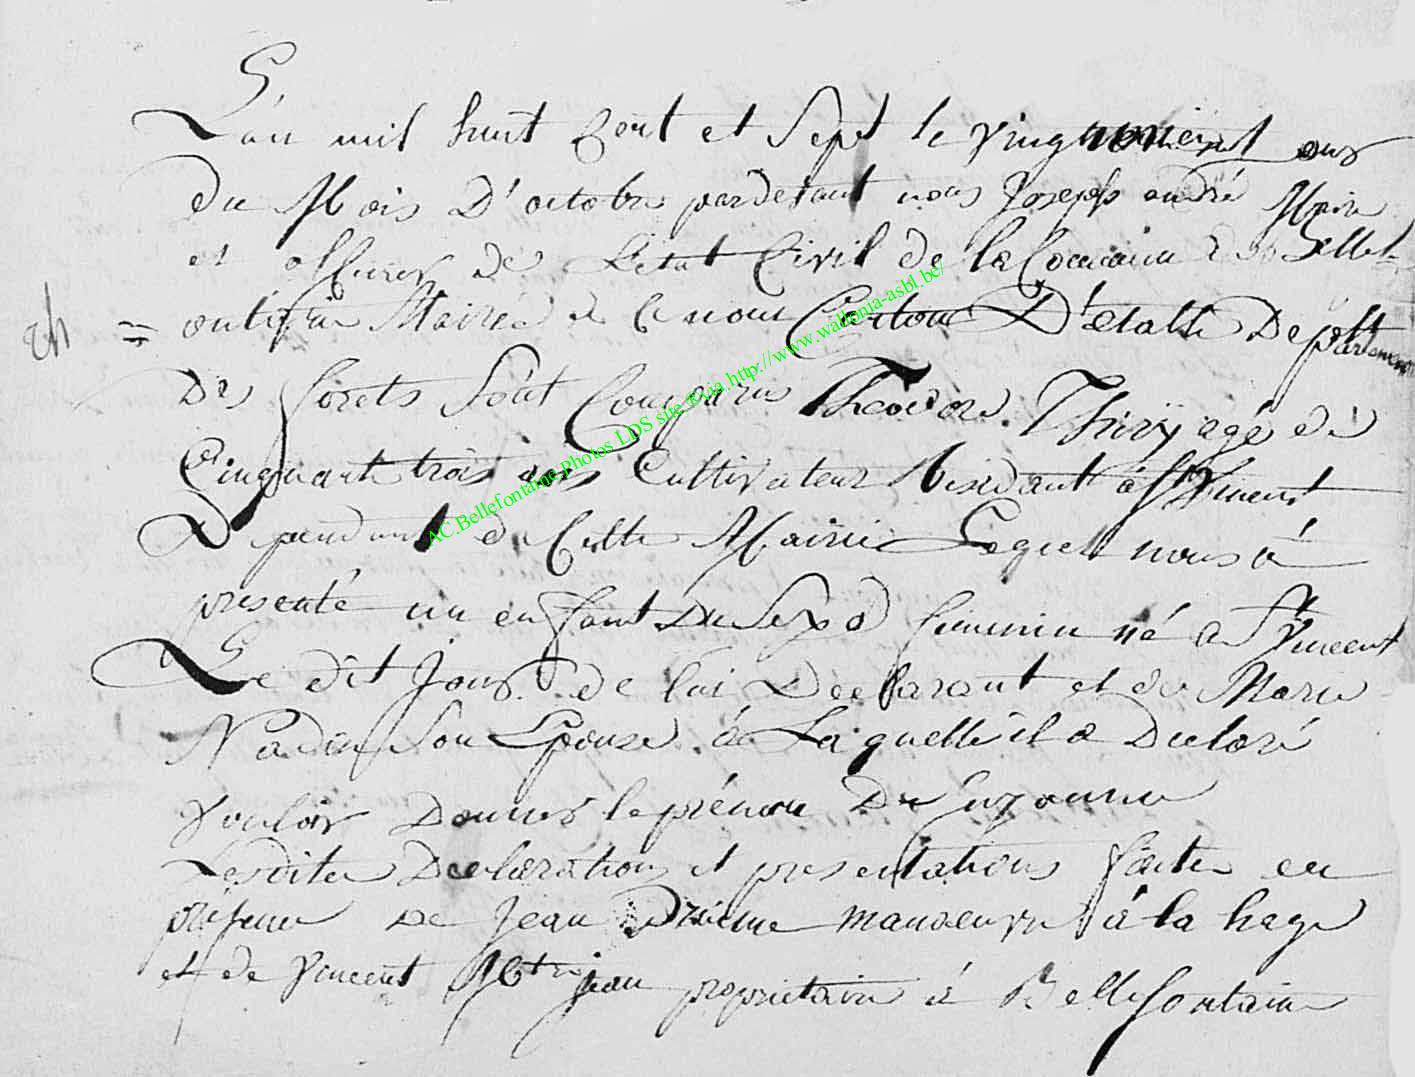 L'an mil huit Cent et Sept le vingt jour
Du Mois D'octobre pardevant nous Joseph andré Maire
et officier De L'etat Civil de la Commune de Bellef-
24 = ontaine Mairie de ce nom Canton D'etalle Depart
Des forets Sont Comparus Théodore Thiry agé de
Cinquante trois ans Cultivateur Residant à St Vincent
Dependant de Cette Mairie Lequel nous à
presenté un enfant Du Sexe feminin né a St Vincent
Le dit Jour de lui Declarant et de Marie
Nadin Son Epouse à Laquelle il a Declaré
Vouloir Donner le prénom De Suzanne
Lesdites Declarations et presentations faites en
presence De Jean manoeuvre à la hage
et de Vincent jean proprietaire à Bellefontaine
AC.Bellefontaine Photos LDS site via http://www.wallonia-asbl.be/